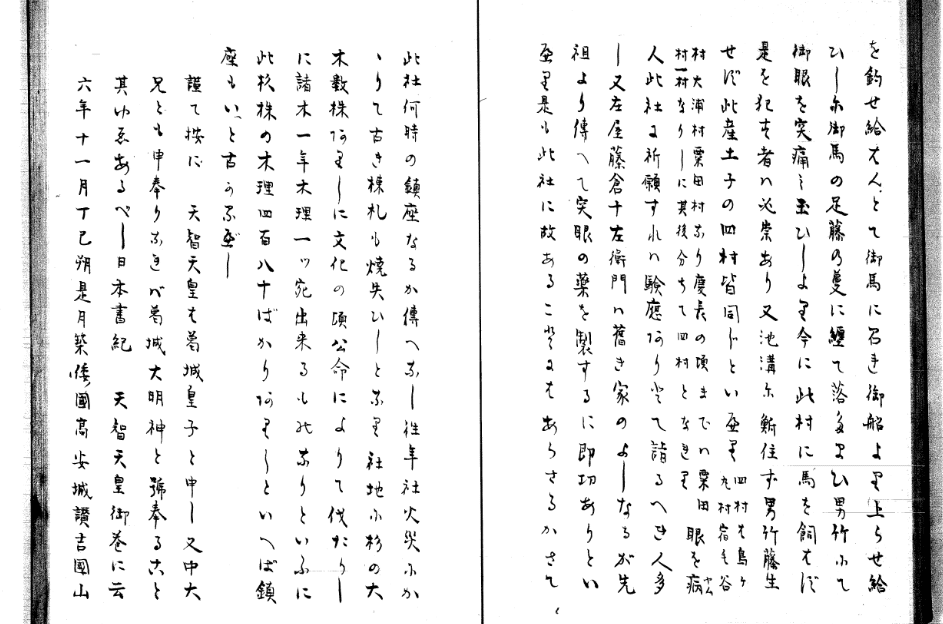 を釣せ給はん、とて御馬に召き御船より上らせ給
ひしに御馬の足藤の蔓に纏て落多まひ男竹にて
御眼を突痛ミ玉ひしより今に此村に馬を飼はず
是を犯す者ハ必崇あり又池溝に鮒住ず男竹藤生
せず此産土子の四村皆同じとい
四村は鳥ヶ
丸村宿毛谷
村大浦村粟田村なり慶長の頃までハ粟田
村一村なりしに其後分ちて四村となき
眼を病
人此社に祈願すれハ驗應ありとて詣るへき人多
し又左屋藤倉十左衛門ハ舊き家のよしなるが先
祖より傳へて突眼の藥を製するに即功ありとい
是も此社に故あることにはあらさるかさて
此社何時の鎮座なるか傳へなし往年社火災にか
ゝりて古き棟札も燒失ひしとなり社地に杉の大
木數株ありしに文化の頃公命によりて伐たりし
に諸木一年木理一ッ宛出来るものなりといふに
此杉株の木理四百八十ばかりありしといへば鎮
座もいと古
謹て按に 天智天皇は葛城皇子と申し又中大
兄とも申奉りなれバ葛城大明神と號奉ること
其ゆゑあるべし日本書紀 天智天皇御巻に云
六年十一月丁巳朔是月築倭國高安城讃吉國山